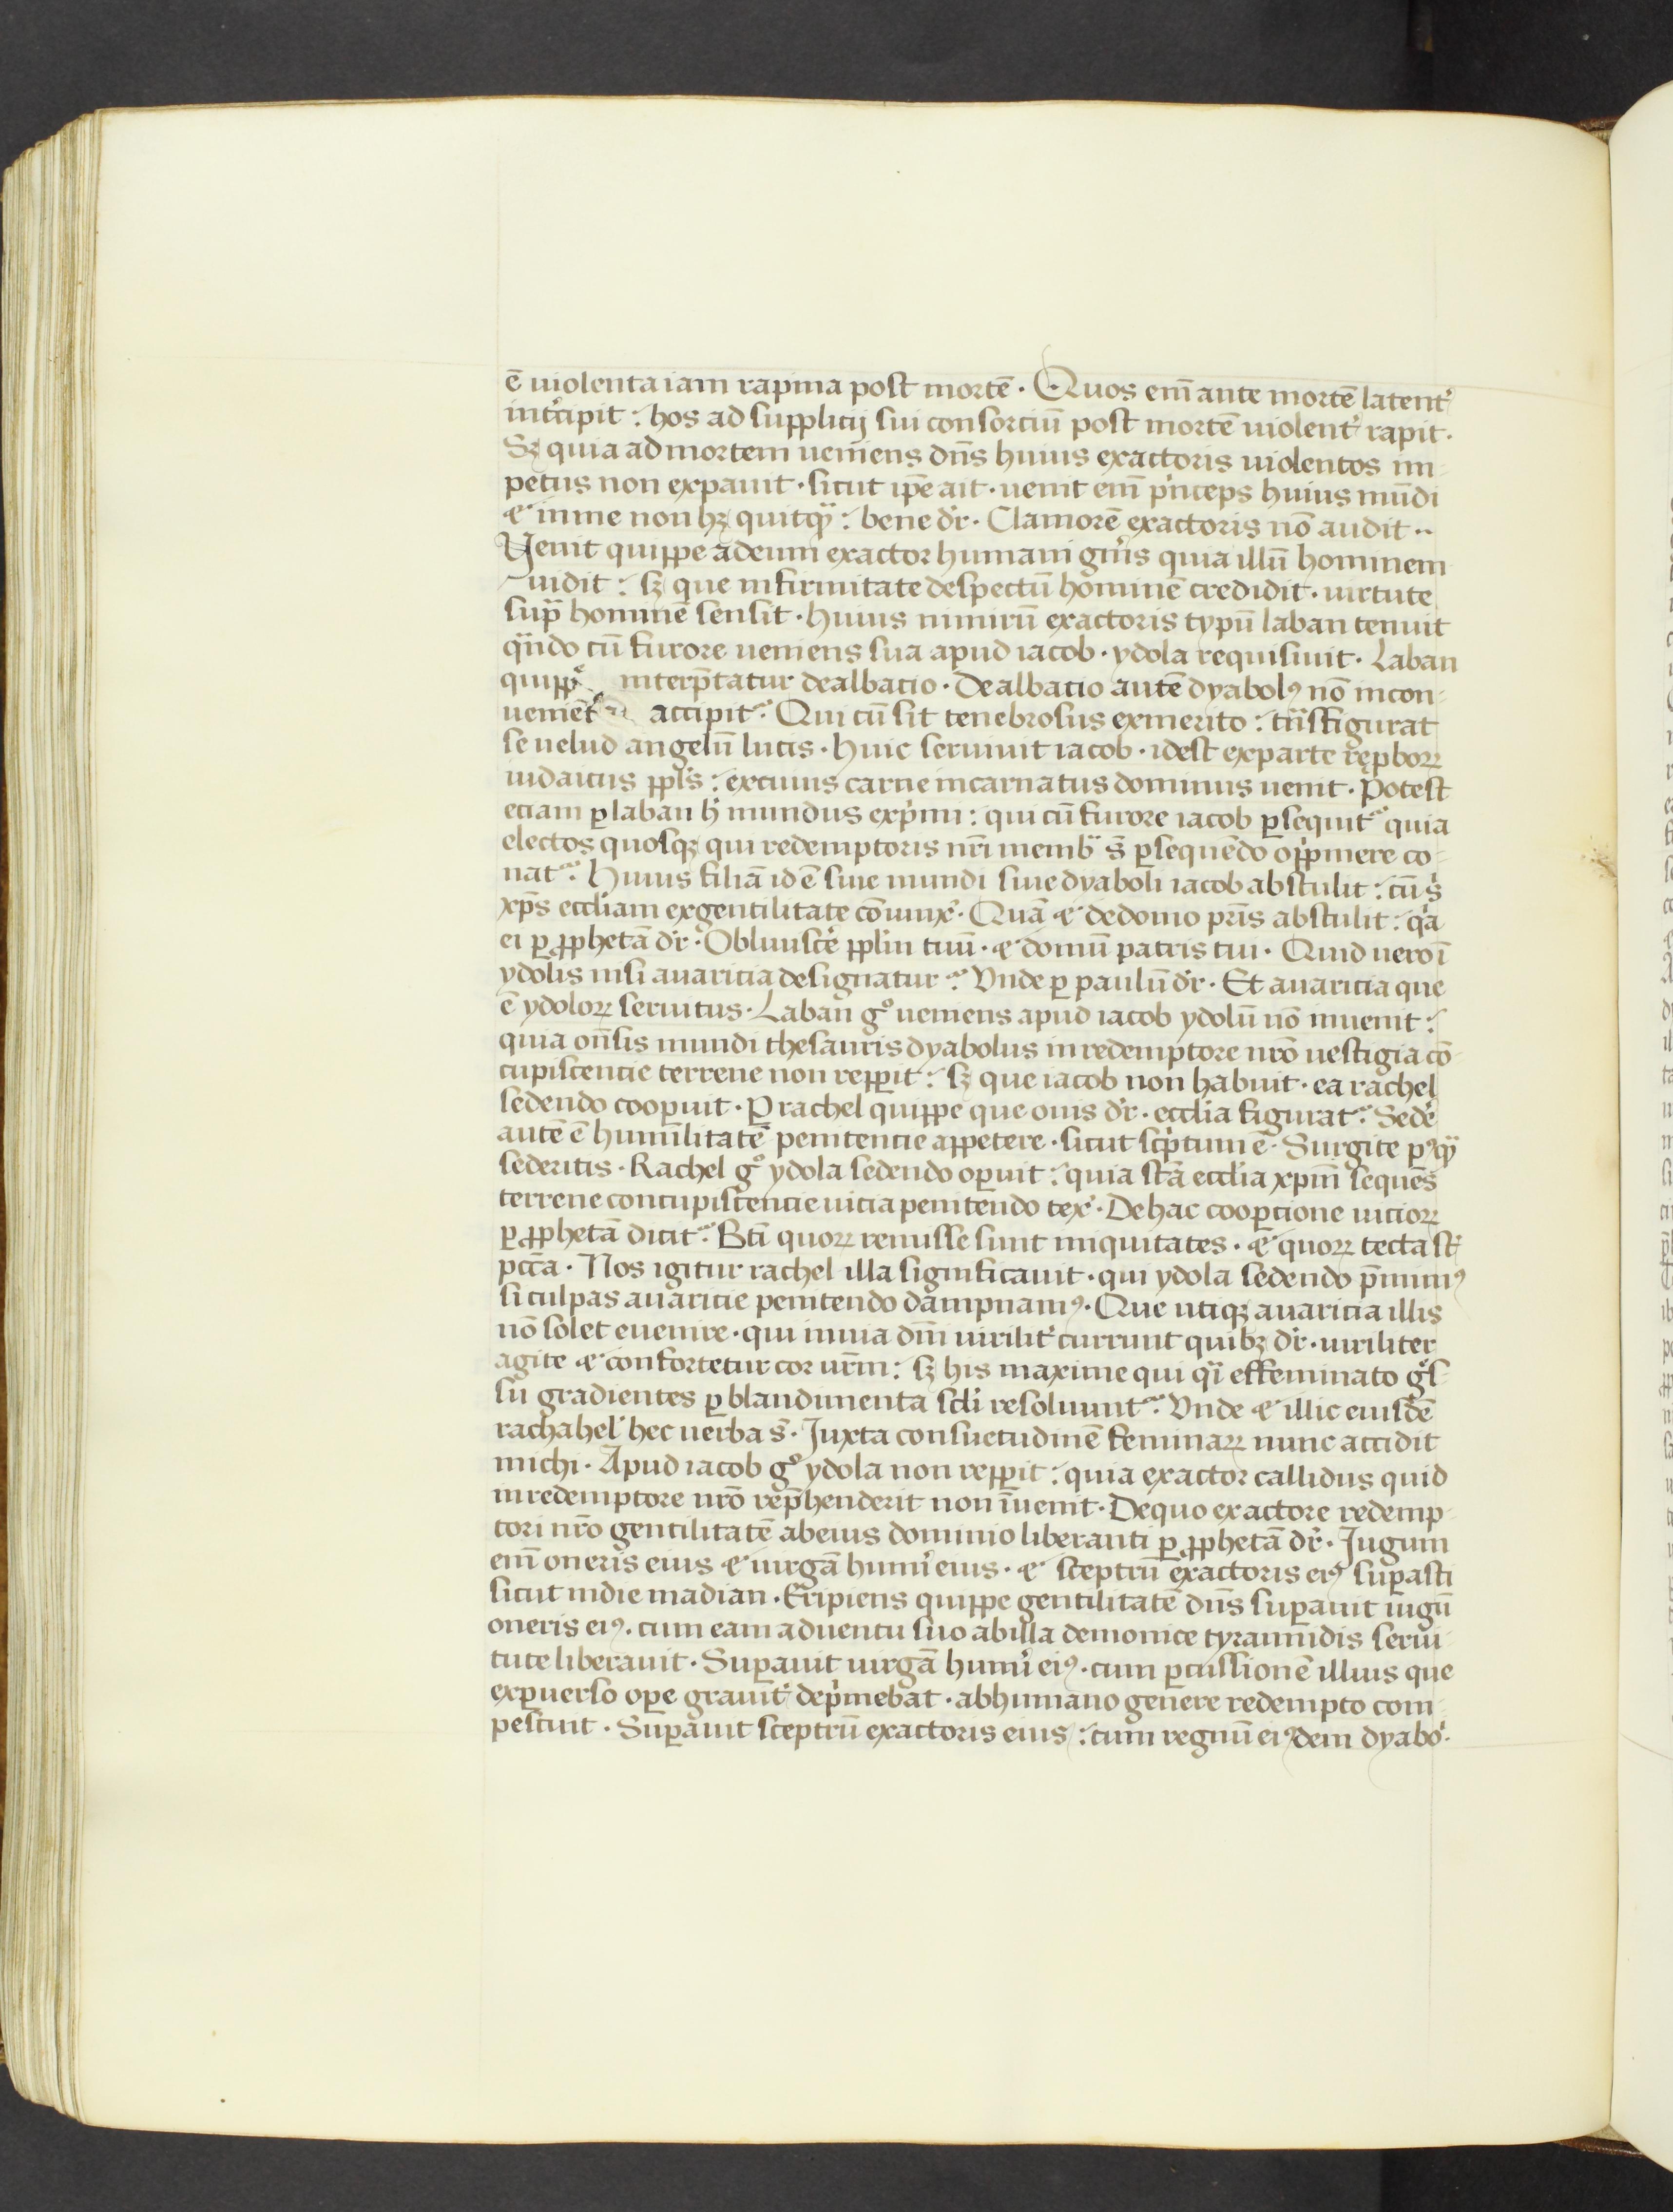 ē uiolenta iam rapina post mortē · Quos em̄ ante mortē latent᷑
int᷑cipit : hos ad supplicij sui consorciū post mortē uiolent᷑ rapit ·
Sꝫ quia ad mortem ueniens dn̄s huius exactoris uiolentos im-
petus non expauit · sicut ip̄e ait · uenit em̄ pͥnceps huius mūdi
⁊ in me non hꝫ quitqᷓ : bene dr̄ · Clamorē exactoris nō audit ··
Uenit quippe ad eum exactor humani gn̄is quia illū hominem
uidit : sꝫ que infirmitate despectū hominē credidit · uirtute
supᷓ hominē sensit · huius nimirū exactoris typū laban tenuit
qᷓndo cū furore ueniens sua apud iacob · ydola requisiuit · Laban
quippe interp̄tatur dealbacio · Dealbacio autē dyabolꝰ nō incon-
ueniēt᷑ accipit᷑ : Qui cū sit tenebrosus ex merito : tᷓnsfigurat
se uelud angelū lucis · huic seruiuit iacob · id est ex parte rep̱borꝝ
iudaicus ppl̄s : ex cuius carne incarnatus dominus uenit · Potest
eciam ꝑ laban hͥ mundus expͥmi : qui cū furore iacob ꝑsequit᷑ quia
electos quosqꝫ qui redemptoris nr̄i membᷓ s̄ ꝑsequendo oppͥmere co-
nat᷑ : Huius filiā id ē siue mundi siue dyaboli iacob abstulit : cū sͥ
xp̄s eccl̄iam ex gentilitate cōiunxͭ · Quā ⁊ de domo pr̄is abstulit : qͥa
ei ꝑ ꝓphetā dr̄ · Obliuisce᷑ ppl̄m tuū · ⁊ domū patris tui · Quid uero ī
ydolis nisi auaricia designatur : Vnde ꝑ paulū dr̄ · Et auaricia que
ē ydolorꝝ seruitus · Laban gͦ ueniens apud iacob ydolū nō inuenit :
quia on̄sis mundi thesauris dyabolus in redemptore nr̄o uestigia cō-
cupiscencie terrene non repꝑit : sꝫ que iacob non habuit · ea rachel
sedendo cooꝑuit · Ꝑ rachel quippe que ouis dr̄ · eccl̄ia figurat᷑ : Sede᷑
autē ē humilitatē penitencie appetere · sicut scpͥtum ē · Surgite pꝰqᷓ
sederitis · Rachel gͦ ydola sedendo oꝑuit : quia sc̄ā eccl̄ia xp̄m sequēs
terrene concupiscencie uicia penitendo texͭ · De hac cooꝑcione uiciorꝝ
ꝑ ꝓphetā dicit᷑ : Bt̄i quorꝝ remisse sunt iniquitates · ⁊ quorꝝ tecta st̄
pccā · Nos igitur rachel illa significauit · qui ydola sedendo p̄mimꝰ
si culpas auaricie penitendo dampnamꝰ · Que utiqꝫ auaricia illis
nō solet euenire · qui in uia dn̄i uirilit᷑ currunt quibꝫ dr̄ · uiriliter
agite ⁊ confortetur cor ur̄m : sꝫ his maxime qui qᷓi effeminato gᷓs-
su gradientes ꝑ blandimenta scl̄i resoluunt᷑ : Vnde ⁊ illic eiusdē
rachahel hec uerba s̄ · Juxta consuetudinē feminarꝝ nunc accidit
michi · Apud iacob gͦ ydola non repꝑit : quia exactor callidus quid
in redemptore nr̄o rep̄henderit non īuenit · De quo exactore redemp-
tori nr̄o gentilitatē ab eius dominio liberanti ꝑ ꝓphetā dr̄ · Jugum
em̄ oneris eius ⁊ uirgā hum᷑i eius · ⁊ sceptrū exactoris eiꝰ suꝑasti
sicut in die madian · Eripiens quippe gentilitatē dn̄s suꝑauit iugū
oneris eiꝰ · cum eam aduentu suo ab illa demonice tyrannidis serui-
tute liberauit · Suꝑauit uirgā hum᷑i eiꝰ · cum ꝑcussionē illius que
ex ꝑuerso oꝑe grauit᷑ depͥmebat · ab humano genere redempto com-
pescuit · Suꝑauit sceptrū exactoris eius : cum regnū eiꝰdem dyabo·